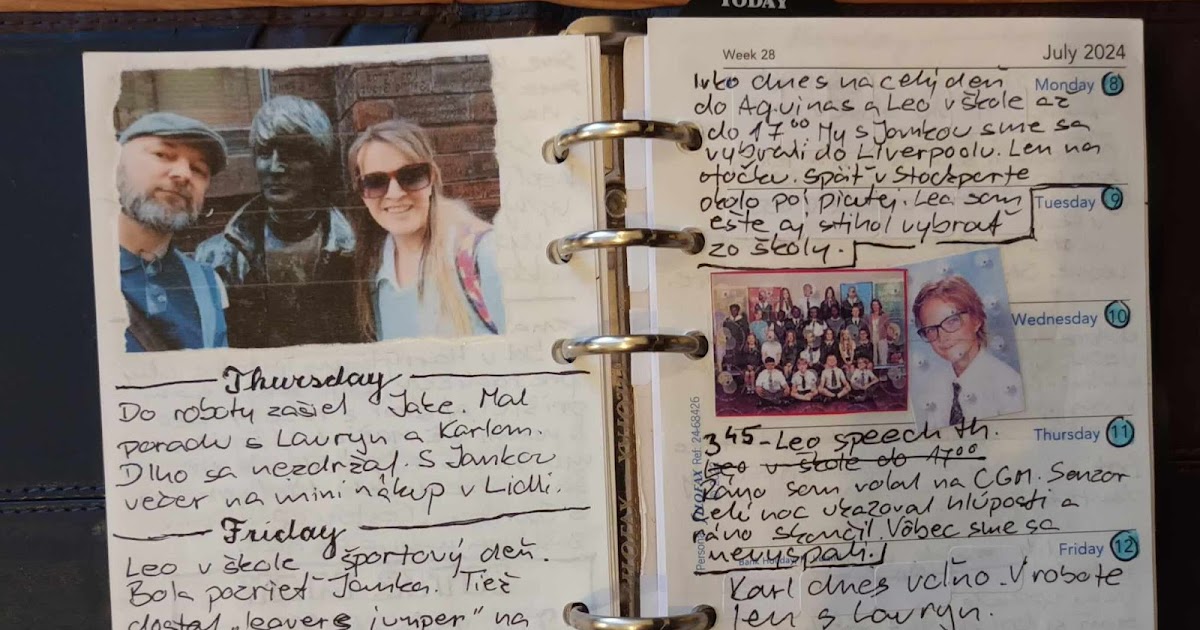 TODAY
Thursday
Do roboty zašiel Jake. Mal
poradu s Lauryn a Karlom.
Dlho sa nezdržal. S Jankou
večer na mini nákup v Lidli.
Friday
Leo v škole športový deň.
Bola pozrieť Janka. Tiež
dostal "leavers jumper" na
Week 28
July 2024
Ivko dnes na celý deň
Monday 8
do Aquinas a Leo v škole až
do 17⁰⁰ My s Jankou sme sa
vybrali do Liverpoolu. Len na
otočku. Späť v Stockporte
okolo pol piatej. Lea som
Tuesday 9
ešte aj stihol vybrať
zo školy.
Wednesday 10
3⁴⁵ - Leo speech th.
Thursday 11
Leo v škole do 17⁰⁰
Ráno som volal na CGM. Senzor
celú noc ukazoval hlúposti a
ráno skončil. Vôbec sme sa
nevyspali.
Friday 12
Bank Holiday
Karl dnes voľno. V robote
len s Lauryn.
Personal FILOFAX Ref: 24-68426